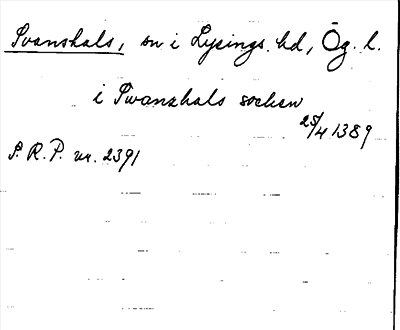 Svanshals, sn i Lysings hd, Ög. l.
i Swanzhals sochen
25/4 1389
S. R. P. nr. 2391